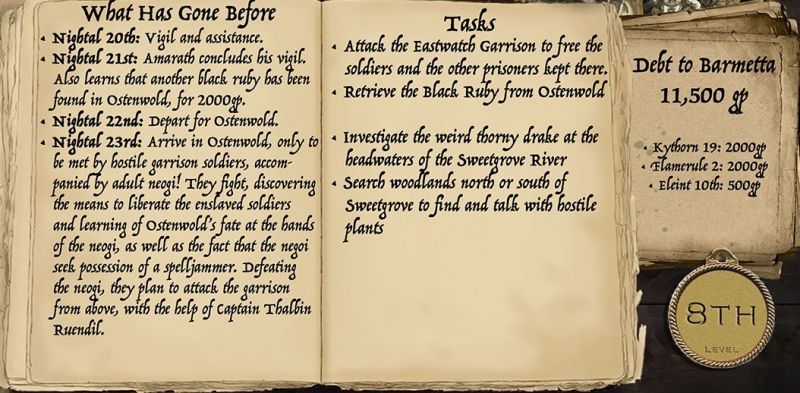 What Has Gone Before
• Nightal 20th: Vigil and assistance.
• Nightal 21st: Amarath concludes his vigil.
Also learns that another black ruby has been
found in Ostenwold, for 2000gp.
• Nightal 22nd: Depart for Ostenwold.
• Nightal 23rd: Arrive in Ostenwold, only to
be met by hostile garrison soldiers, accom-
panied by adult neogi! They fight, discovering
the means to liberate the enslaved soldiers
and learning of Ostenwold's fate at the hands
of the neogi, as well as the fact that the negoi
seek possession of a spelljammer. Defeating
the neogi, they plan to attack the garrison
from above, with the help of Captain Thalbin
Ruendil.
Tasks
• Attack the Eastwatch Garrison to free the
soldiers and the other prisoners kept there.
• Retrieve the Black Ruby from Ostenwold
• Investigate the weird thorny drake at the
headwaters of the Sweetgrove River
• Search woodlands north or south of
Sweetgrove to find and talk with hostile
plants
Debt to Barmetta
11,500 gp
• Kythorn 19: 2000gp
• Flamerule 2: 2000gp
• Eleint 10th: 500gp
8TH
LEVEL